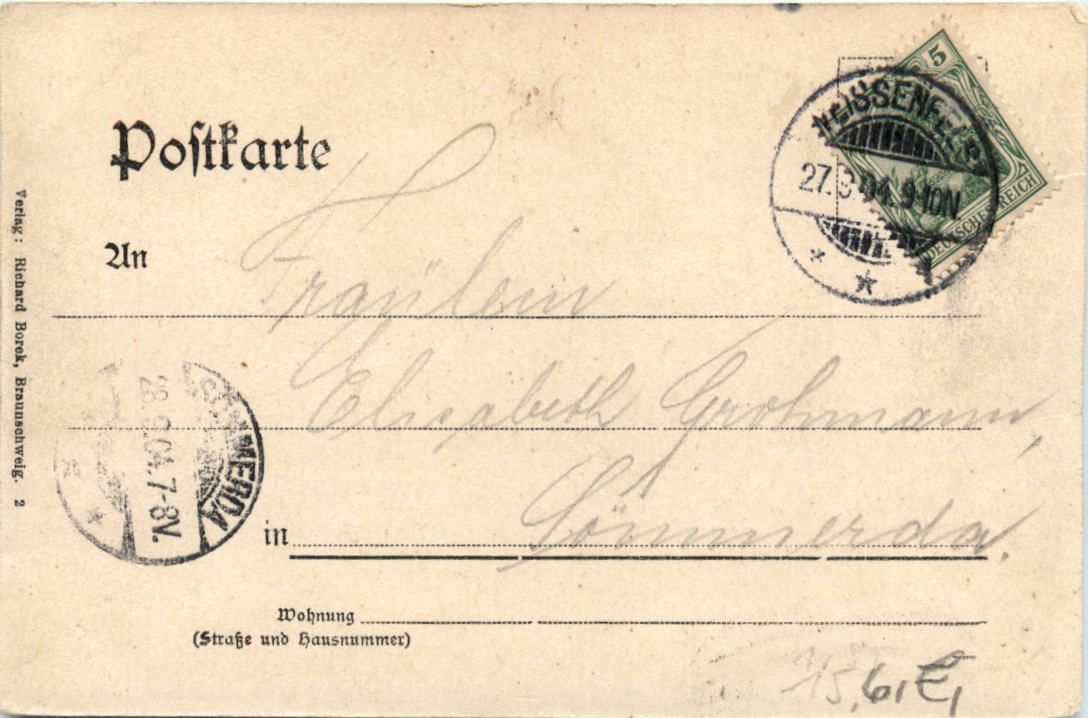 Postkarte
5
DEUTSCHES REICH
WEISSENFELS
27. 04. 9-10N.
An
Fräulein
Elisabeth Grohmann,
in Sömmerda.
SÖMMERDA
28. 04. 7-8V.
Wohnung
(Straße und Hausnummer)
Verlag: Richard Borek, Braunschweig. 2